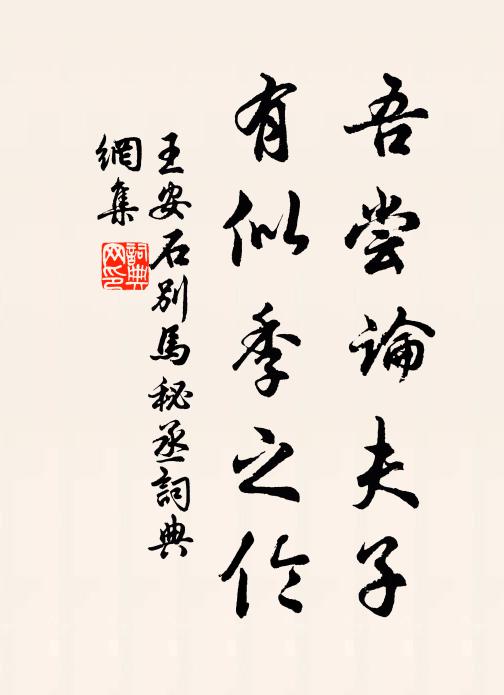 吾尝論夫子
有似季之伶
王安石别馬秘丞詞典
網集
詞典網印